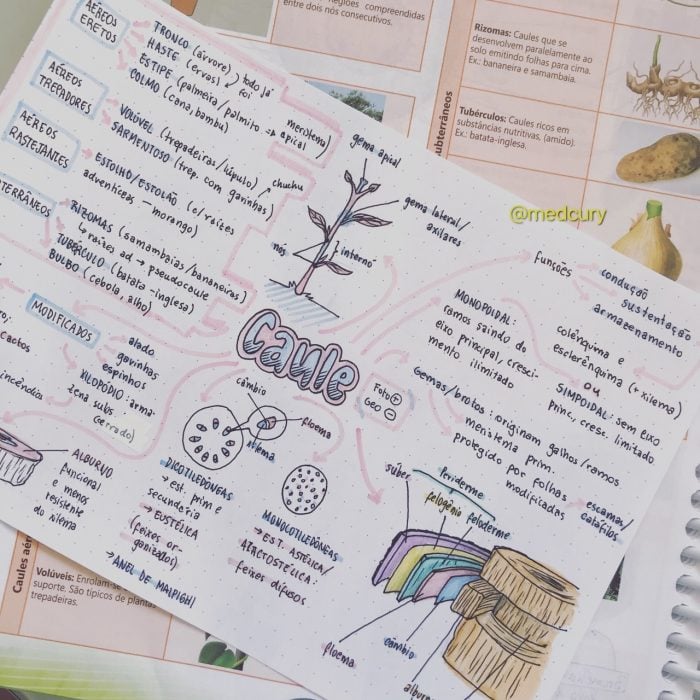 regiões compreendidas
entre dois nós consecutivos.
Rizomas: Caules que se
desenvolvem paralelamente ao
solo emitindo folhas para cima.
Ex.: bananeira e samambaia.
Tubérculos: Caules ricos em
substâncias nutritivas, (amido).
Ex.: batata-inglesa.
ubterrâneos
@medcury
AÉREOS
ERETOS
TRONCO (árvore)
HASTE (ervas)
todo já
foi
meristema
ESTIPE (palmeira/palmito → apical
COLMO (cana, bambu)
AÉREOS
TREPADORES
VOLÚVEL (trepadeiras/lúpulo)
SARMENTOSO (trep. com garinhas)
chuchu
AÉREOS
RASTEJANTES
ESTOLHO/ESTOLÃO (c/raízes
adventíceas - morango)
TERRÂNEOS
RIZOMAS (samambaias/bananeiras)
↳ raízes ad → pseudocaule
TUBÉRCULO (batata-inglesa)
BULBO (cebola, alho)
MODIFICADOS
alado
gavinhas
espinhos
XILOPÓDIO: arma-
zena subs.
(cerrado)
cactos
incêndios
ALBURNO
funcional
e menos
resistente
do xilema
gema apical
gema lateral/
axilares
nós
internó
Caule
Foto +
Geo -
funções
condução
sustentação
armazenamento
colênquima e
esclerênquima (+ xilema)
MONOPOIDAL:
ramos saindo do
eixo principal, cresci-
mento ilimitado
ou
SIMPOIDAL: sem eixo
princ, cresc. limitado
Gemas/brotos: originam galhos/ramos
meristema prim.
protegido por folhas
modificadas
escamas/
catáfilos
câmbio
floema
xilema
DICOTILEDÔNEAS
→ est. prim e
secundária
→ EUSTÉLICA
(feixes or-
ganizados)
→ ANEL DE MALPIGHI
MONOCOTILEDÔNEAS
→ EST. ASTÉLICA/
ATACTOSTÉLICA:
feixes difusos
súber
Periderme
felogênio
feloderme
floema
câmbio
alburn
Caules aér
Volúveis: Enrolam-se
suporte. São típicos de planta
trepadeiras.